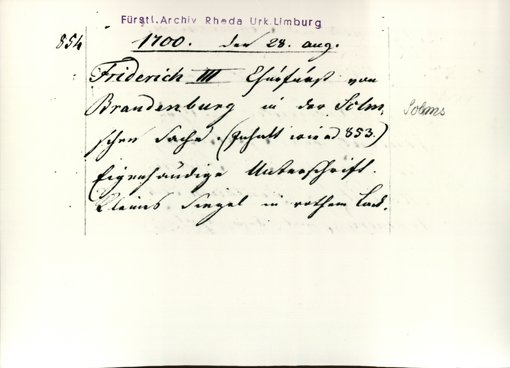 Fürstl.Archiv Rheda Urk.Limburg
854
1700. den 28. aug.
Friderich III Churfürst von
Brandenburg in der Solm,
schen Sache. (Inhalt wie in 853.)
Solms
Eigenhändige Unterschrift.
Kleines Siegel in rothem Lack.